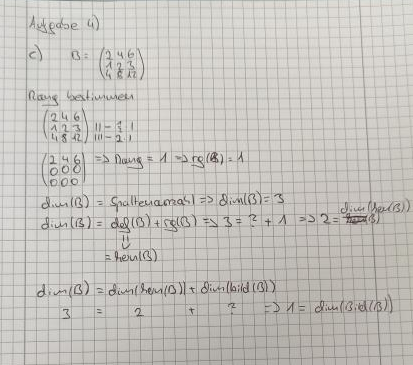 Aufgabe 4)
c) B = (2 4 6
1 2 3
4 8 12)
Rang bestimmen
(2 4 6
1 2 3 II - ½ I
4 8 12) III - 2 I
(2 4 6
0 0 0
0 0 0) => Rang = 1 => rg(B) = 1
dim(B) = Spaltenanzahl => dim(B) = 3
dim(B) = def(B) + rg(B) => 3 = ? + 1 => 2 = dim(kern(B))
= kern(B)
dim(B) = dim(kern(B)) + dim(bild(B))
3 = 2 + ? => 1 = dim(Bild(B))